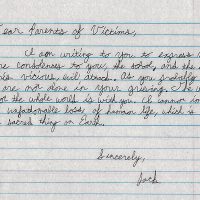 ear Parents of Victims,
I am writing to you to express
re condolences to you, the school, and the
vicious, evil attack. As you probably
are not alone in your grieving. The w
the whole world is with you. I cannot
unfathomable loss, of human life, which is
sacred thing on Earth.
Sincerely,
Jack